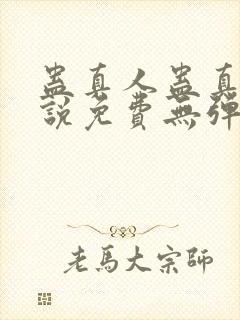 蠱真人蠱真
說免費無彈
老馬大宗師